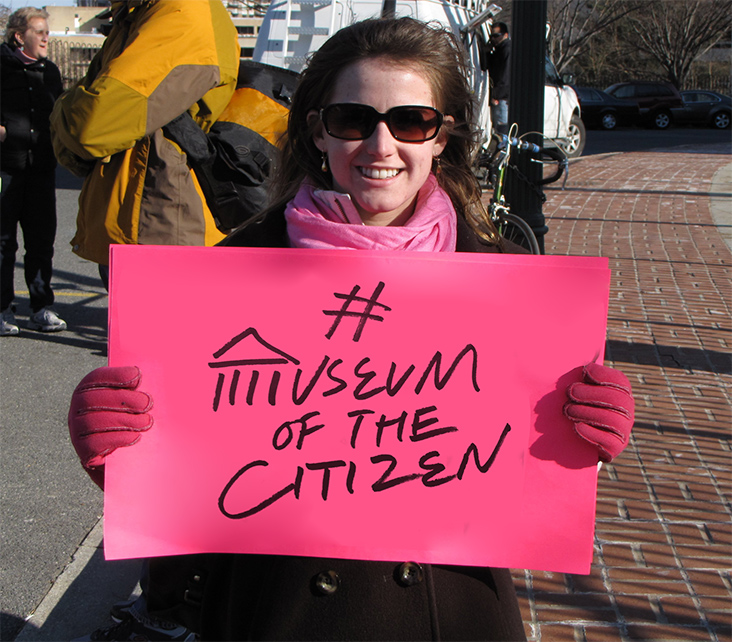 #
MUSEUM
OF THE
CITIZEN